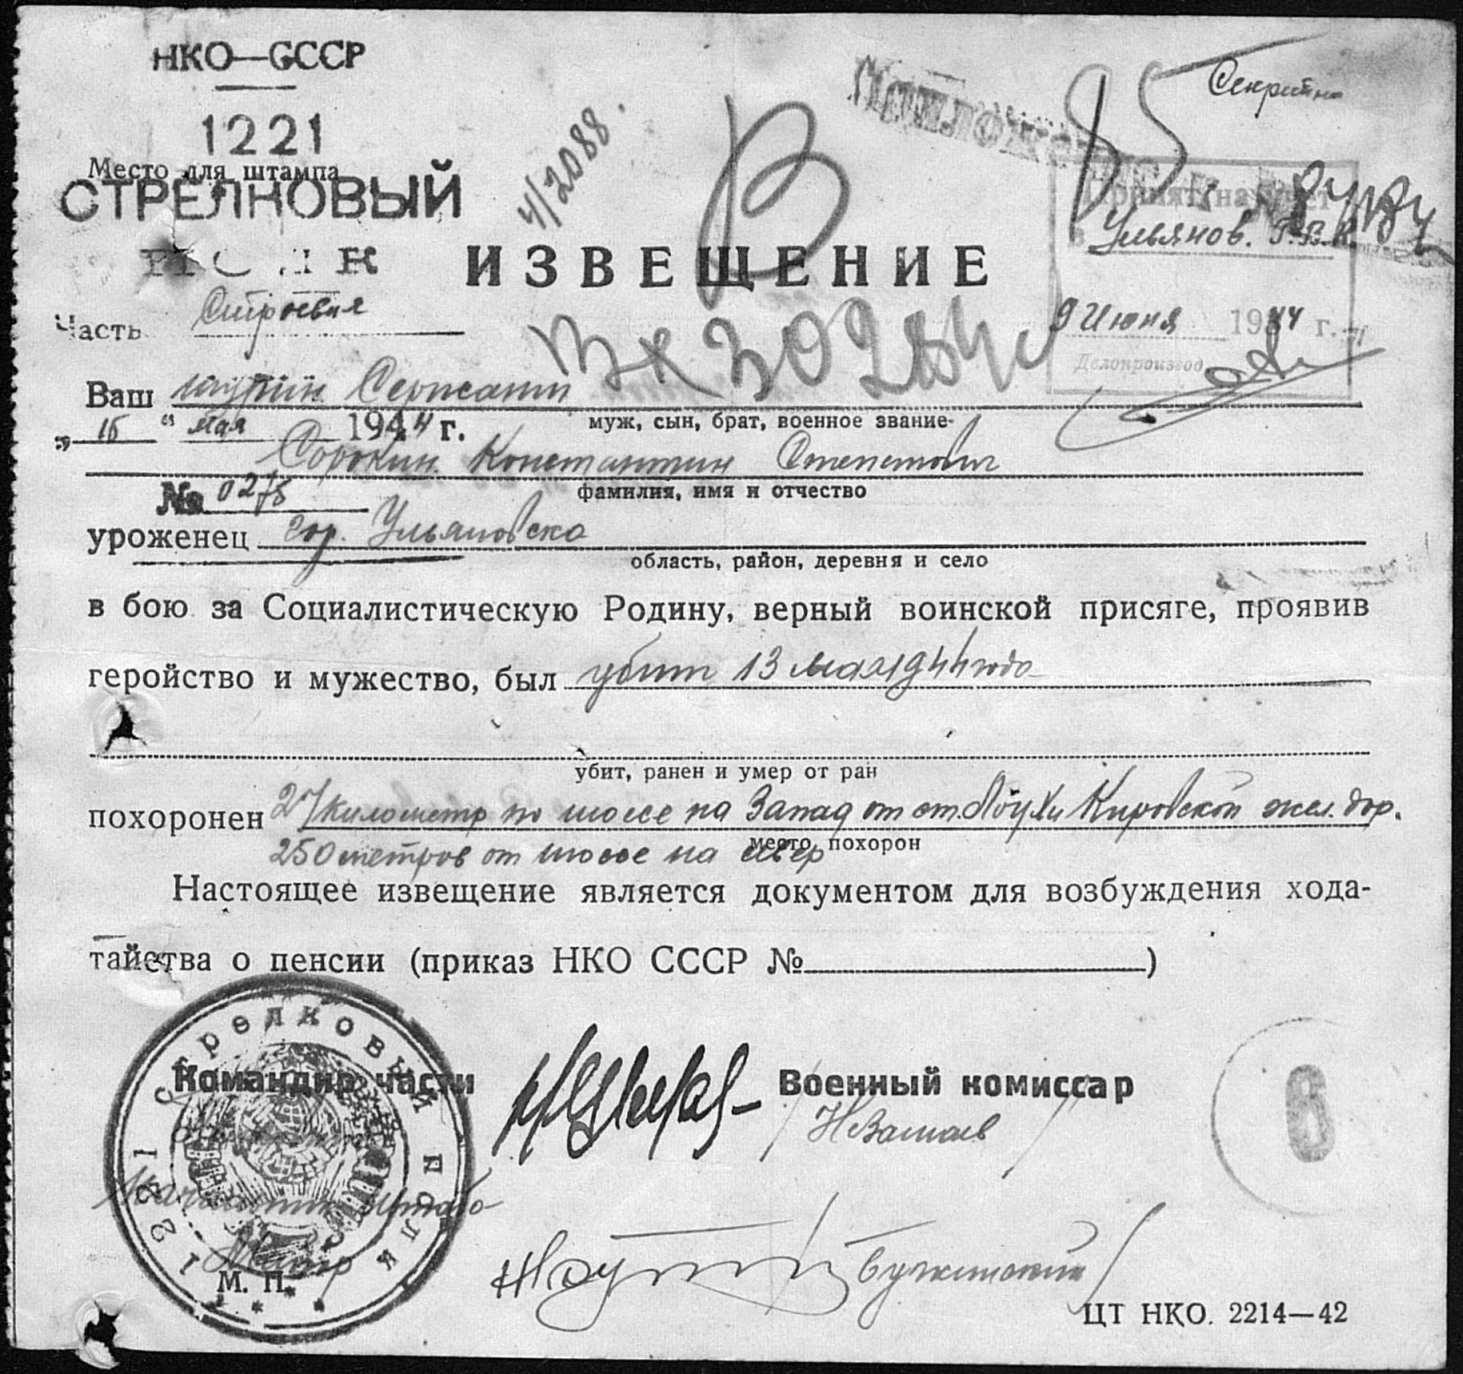 НКО—СССР
Секретно
1221
4/2088.
В
85
Место для штампа
СТРЕЛКОВЫЙ
ПОЛК
Приложение
Принят на учет
в Ульянов. Г.В.К.
ИЗВЕЩЕНИЕ
Часть Строевая
Вх 30284с
9 Июня 1944 г.
Делопроизвод
Ваш шурин Сержант
муж, сын, брат, военное звание
„16“ мая 1944 г.
Сорокин Константин Степанович
фамилия, имя и отчество
№ 0275
уроженец гор. Ульяновска
область, район, деревня и село
в бою за Социалистическую Родину, верный воинской присяге, проявив
геройство и мужество, был убит 13 мая 1944 года
убит, ранен и умер от ран
похоронен 27 километр по шоссе на Запад от ст. Лоухи Кировской жел. дор.
место похорон
250 метров от шоссе на север
Настоящее извещение является документом для возбуждения хода-
тайства о пенсии (приказ НКО СССР №)
1221 стрелковый полк
Командир части
Военный комиссар
Начальник штаба
Майор
М. П.
6
ЦТ НКО. 2214—42